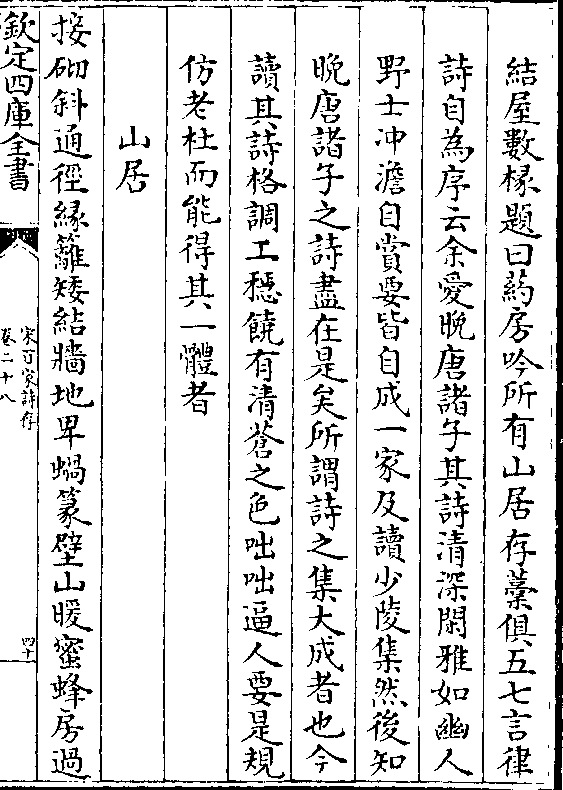 結屋數椽題曰葯房吟所有山居存藳俱五七言律
詩自為序云余愛晚唐諸子其詩清深閑雅如幽人
野士冲澹自賞要皆自成一家及讀少陵集然後知
晚唐諸子之詩盡在是矣所謂詩之集大成者也今
讀其詩格調工穩饒有清蒼之色咄咄逼人要是規
仿老杜而能得其一體者
山居
接砌斜通徑縁籬矮結牆地卑蝸篆壁山暖蜜蜂房過
欽定四庫全書
宋百家詩存
卷二十八
四十